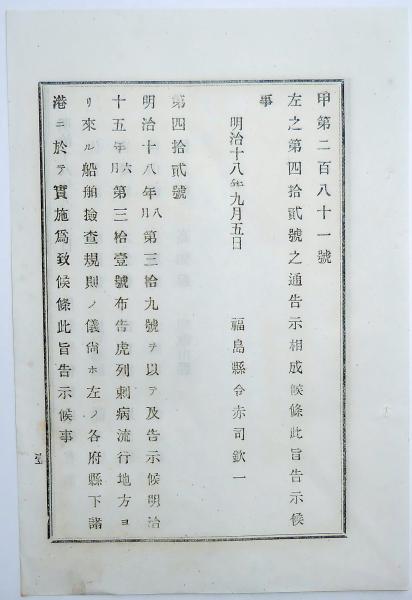 甲第二百八十一號
左之第四拾貳號之通告示相成候條此旨告示候
事
明治十八年九月五日　福島縣令赤司欽一
第四拾貳號
明治十八年八月第三拾九號ヲ以テ及告示候明治
十五年六月第三拾壹號布告虎列剌病流行地方ヨ
リ來ル船舶撿査規則ノ儀尙ホ左ノ各府縣下諸
港ニ於テ實施爲致候條此旨告示候事